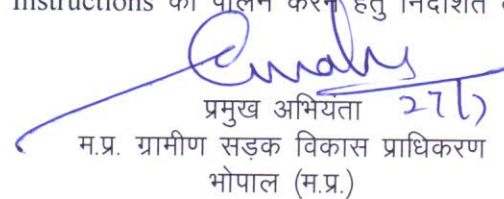 Instructions का पालन करने हेतु निर्देशित
प्रमुख अभियता 27/7
म.प्र. ग्रामीण सड़क विकास प्राधिकरण
भोपाल (म.प्र.)